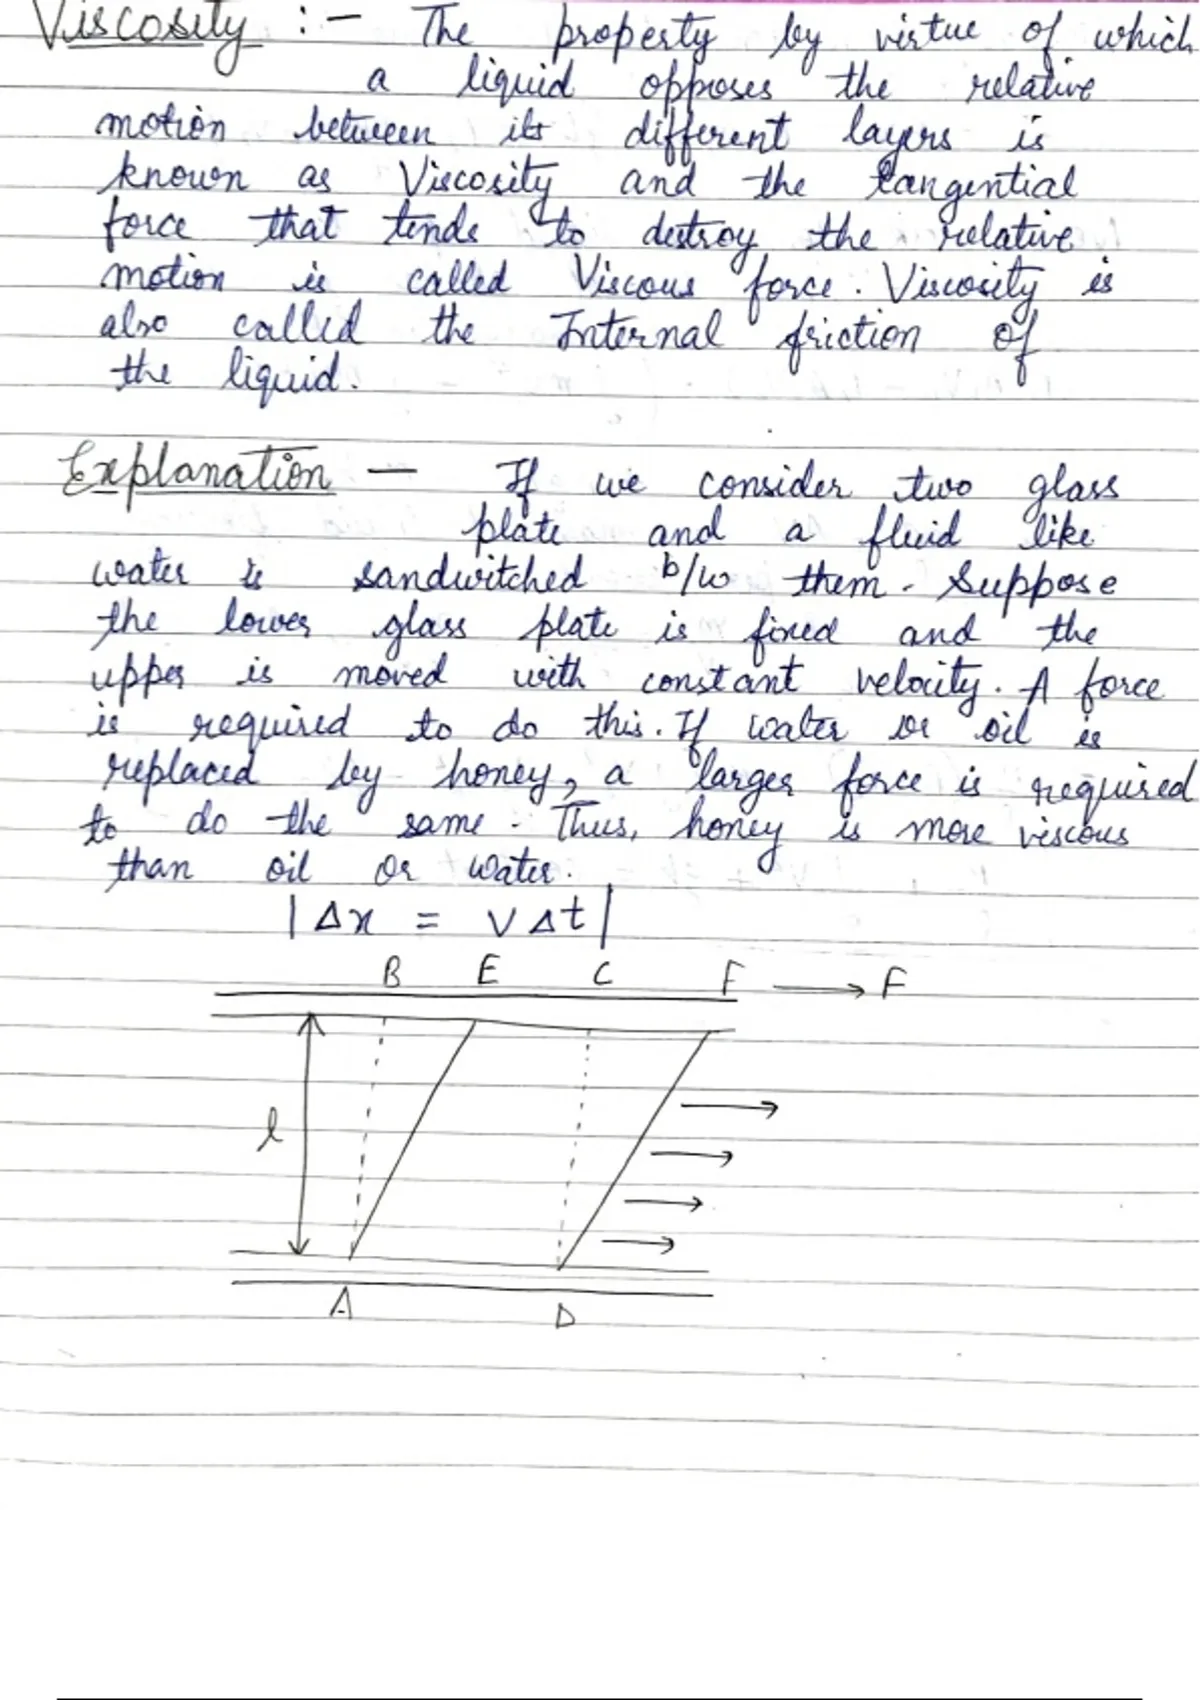 Viscosity :- The property by virtue of which
a liquid opposes the relative
motion between its different layers is
known as Viscosity and the tangential
force that tends to destroy the relative
motion is called Viscous force. Viscosity is
also called the Internal friction of
the liquid.
Explanation — If we consider two glass
plate and a fluid like
water is sandwitched b/w them. Suppose
the lower glass plate is fixed and the
upper is moved with constant velocity. A force
is required to do this. If water or oil is
replaced by honey, a larger force is required
to do the same. Thus, honey is more viscous
than oil or water.
| Δx = VΔt |
B E C F → F
l
A D